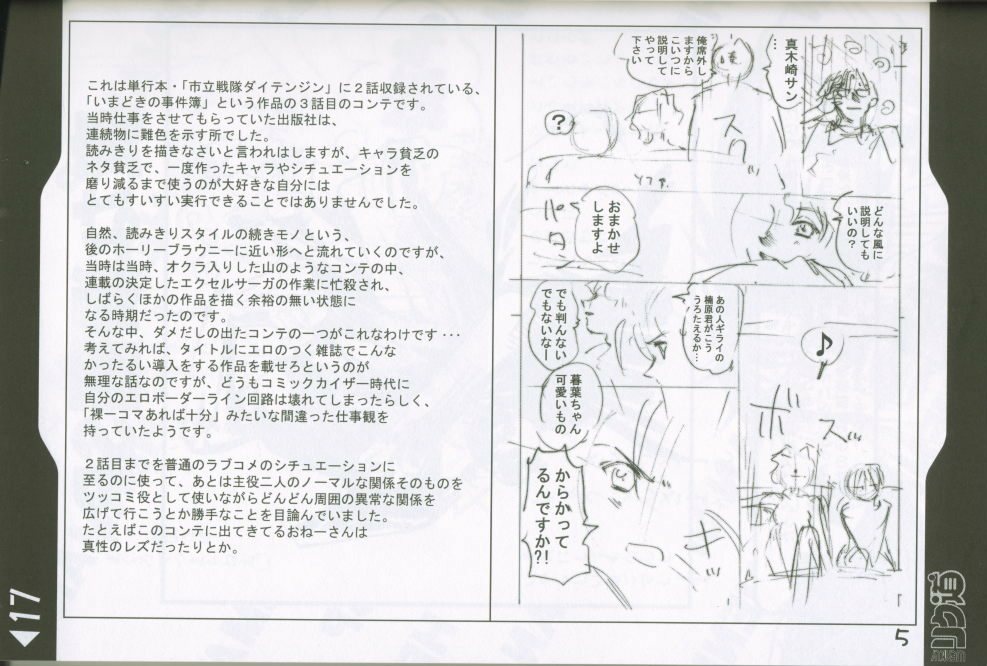 これは単行本・「市立戦隊ダイテンジン」に２話収録されている、
「いまどきの事件簿」という作品の３話目のコンテです。
当時仕事をさせてもらっていた出版社は、
連続物に難色を示す所でした。
読みきりを描きなさいと言われはしますが、キャラ貧乏の
ネタ貧乏で、一度作ったキャラやシチュエーションを
磨り減るまで使うのが大好きな自分には
とてもすいすい実行できることではありませんでした。
自然、読みきりスタイルの続きモノという、
後のホーリーブラウニーに近い形へと流れていくのですが、
当時は当時、オクラ入りした山のようなコンテの中、
連載の決定したエクセルサーガの作業に忙殺され、
しばらくほかの作品を描く余裕の無い状態に
なる時期だったのです。
そんな中、ダメだしの出たコンテの一つがこれなわけです・・・
考えてみれば、タイトルにエロのつく雑誌でこんな
かったるい導入をする作品を載せろというのが
無理な話なのですが、どうもコミックカイザー時代に
自分のエロボーダーライン回路は壊れてしまったらしく、
「裸一コマあれば十分」みたいな間違った仕事観を
持っていたようです。
２話目までを普通のラブコメのシチュエーションに
至るのに使って、あとは主役二人のノーマルな関係そのものを
ツッコミ役として使いながらどんどん周囲の異常な関係を
広げて行こうとか勝手なことを目論んでいました。
たとえばこのコンテに出てきてるおねーさんは
真性のレズだったりとか。
真木崎サン
…
俺席外し
ますから
こいつに
説明して
やって
下さい
スッ
?
ソファ
どんな風に
説明しても
いいの？
おまかせ
しますよ
あの人ギライの
楠原君がこう
うろたえるか…
でも判んない
でもないなー
暮葉ちゃん
可愛いもの
からかって
るんですか?!
♪
ボ
スッ
キッ
5
17